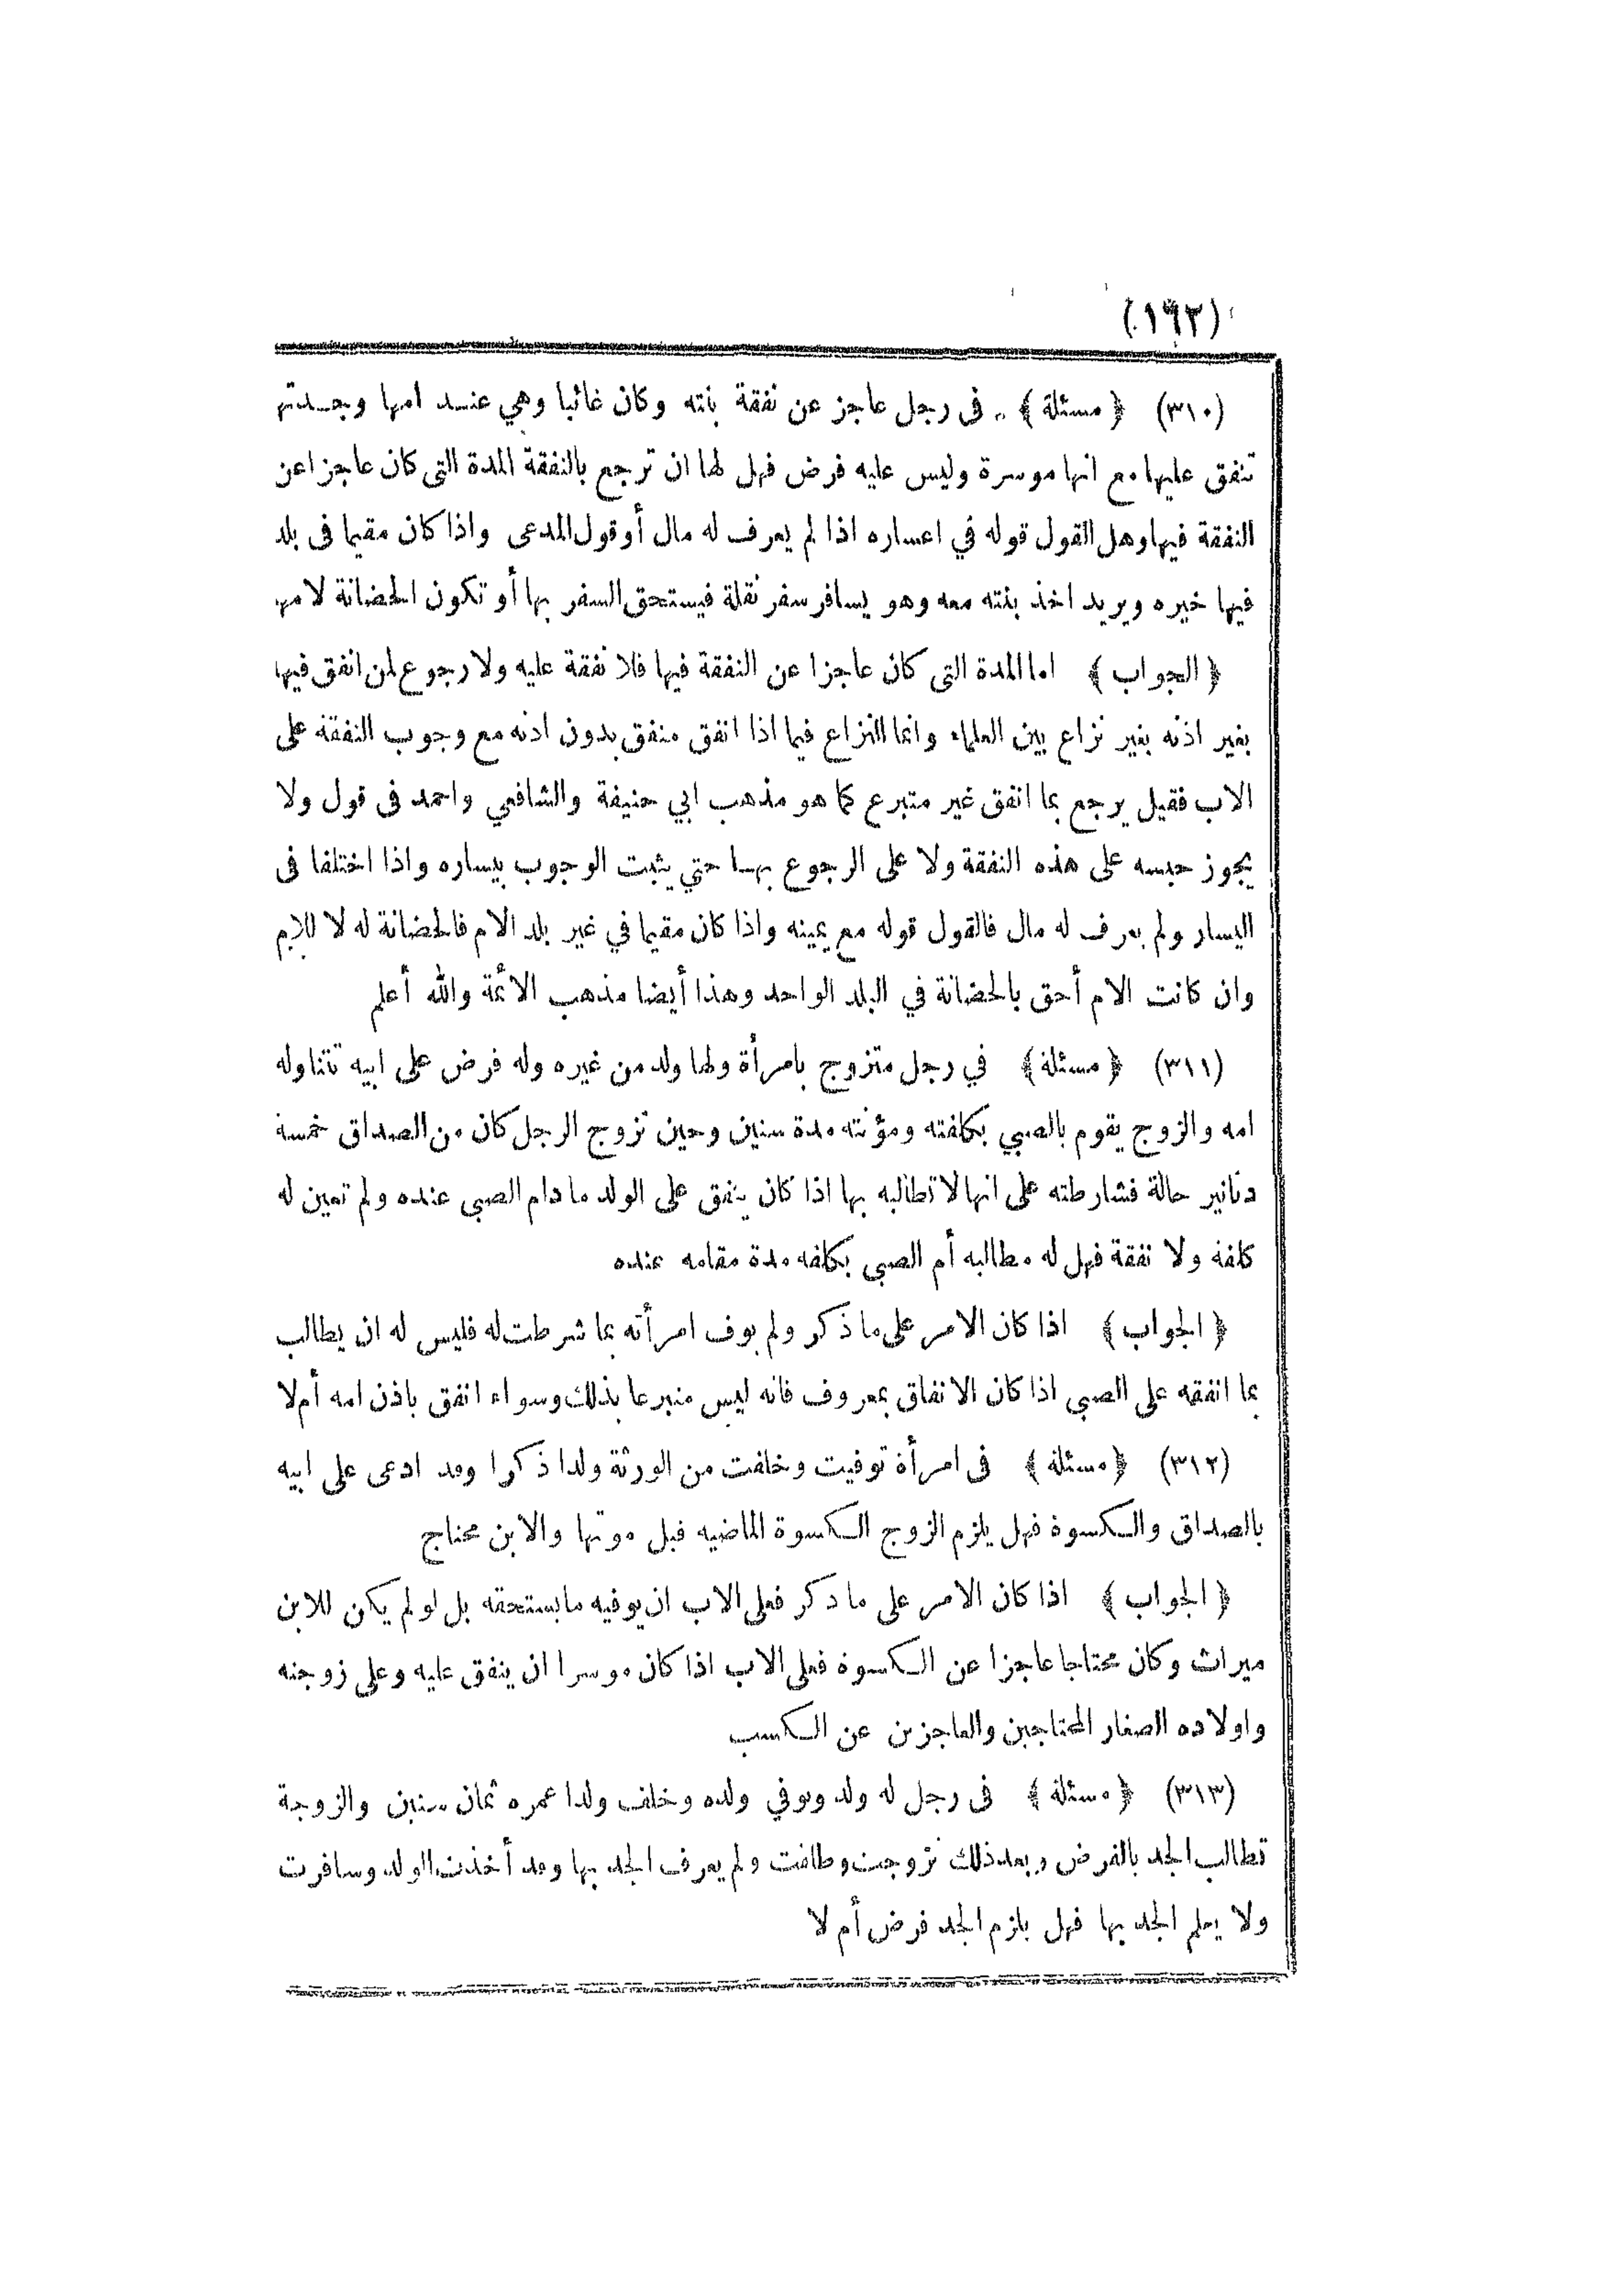 (١٩٢)
(٣١٠) ﴿ مسئلة ﴾ في رجل عاجز عن نفقة بنته وكان غائبا وهي عند امها وجدتها
تنفق عليها مع انها موسرة وليس عليه فرض فهل لها ان ترجع بالنفقة المدة التى كان عاجزا عن
النفقة فيها وهل القول قوله في اعساره اذا لم يعرف له مال أو قول المدعى واذا كان مقيما فى بلد
فيها خيره ويريد اخذ بنته معه وهو يسافر سفر نقلة فيستحق السفر بها أو تكون الحضانة لامها
﴿ الجواب ﴾ اما المدة التى كان عاجزا عن النفقة فيها فلا نفقة عليه ولا رجوع لمن انفق فيها
بغير اذنه بغير نزاع بين العلماء وانما النزاع فيما اذا انفق منفق بدون اذنه مع وجوب النفقة على
الاب فقيل يرجع بما انفق غير متبرع كما هو مذهب ابي حنيفة والشافعي واحمد فى قول ولا
يجوز حبسه على هذه النفقة ولا على الرجوع بها حتي يثبت الوجوب بيساره واذا اختلفا فى
اليسار ولم يعرف له مال فالقول قوله مع يمينه واذا كان مقيما في غير بلد الام فالحضانة له لا للام
وان كانت الام أحق بالحضانة في البلد الواحد وهذا أيضا مذهب الائمة والله أعلم
(٣١١) ﴿ مسئلة ﴾ في رجل متزوج بامرأة ولها ولد من غيره وله فرض على ابيه تتناوله
امه والزوج يقوم بالصبي بكلفته ومؤنته مدة سنين وحين تزوج الرجل كان من الصداق خمسة
دنانير حالة فشارطته على انها لا تطالبه بها اذا كان ينفق على الولد ما دام الصبي عنده ولم تعين له
كلفة ولا نفقة فهل له مطالبه أم الصبي بكلفه مدة مقامه عنده
﴿ الجواب ﴾ اذا كان الامر على ما ذكر ولم يوف امرأته بما شرطت له فليس له ان يطالب
بما انفقه على الصبي اذا كان الانفاق بمعروف فانه ليس متبرعا بذلك وسواء انفق باذن امه أم لا
(٣١٢) ﴿ مسئلة ﴾ فى امرأة توفيت وخلفت من الورثة ولدا ذكرا وقد ادعى على ابيه
بالصداق والكسوة فهل يلزم الزوج الكسوة الماضيه قبل موتها والابن محتاج
﴿ الجواب ﴾ اذا كان الامر على ما ذكر فعلى الاب ان يوفيه ما يستحقه بل لو لم يكن للابن
ميراث وكان محتاجا عاجزا عن الكسوة فعلى الاب اذا كان موسرا ان ينفق عليه وعلى زوجته
واولاده الصغار المحتاجين والعاجزين عن الكسب
(٣١٣) ﴿ مسئلة ﴾ فى رجل له ولد وتوفي ولده وخلف ولدا عمره ثمان سنين والزوجة
تطالب الجد بالفرض وبعد ذلك تزوجت وطلقت ولم يعرف الجد بها وقد أخذت الولد وسافرت
ولا يعلم الجد بها فهل يلزم الجد فرض أم لا